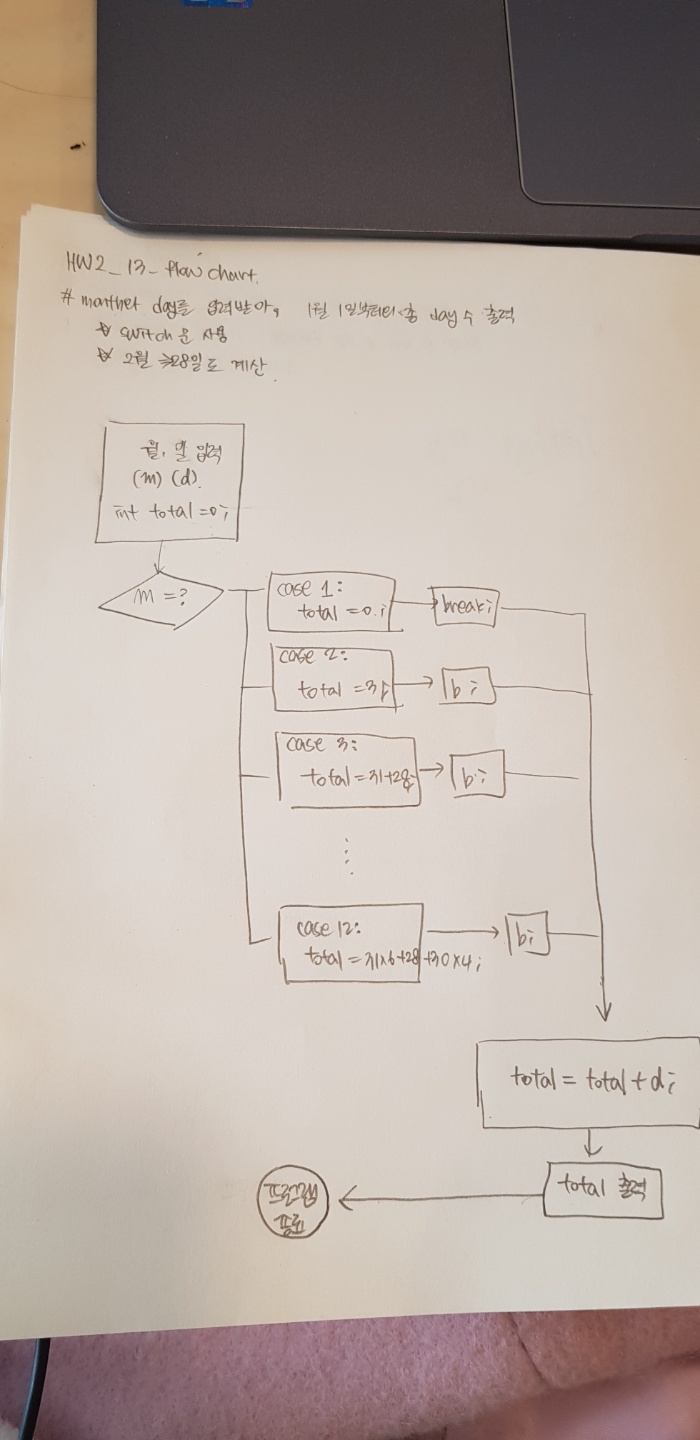 HW2_13_flow chart.
# month와 day를 입력받아, 1월 1일부터의 총 day 수 출력
☆ switch 문 사용
☆ 2월 ⇒28일로 계산.
월, 일 입력
(m) (d).
int total =0;
m =?
case 1:
total =0.;
break;
case 2:
total =31;
b;
case 3:
total =31+28;
b;
⋮
case 12:
total =31×6+28+30×4;
b;
total = total + d;
total 출력
프로그램
종료